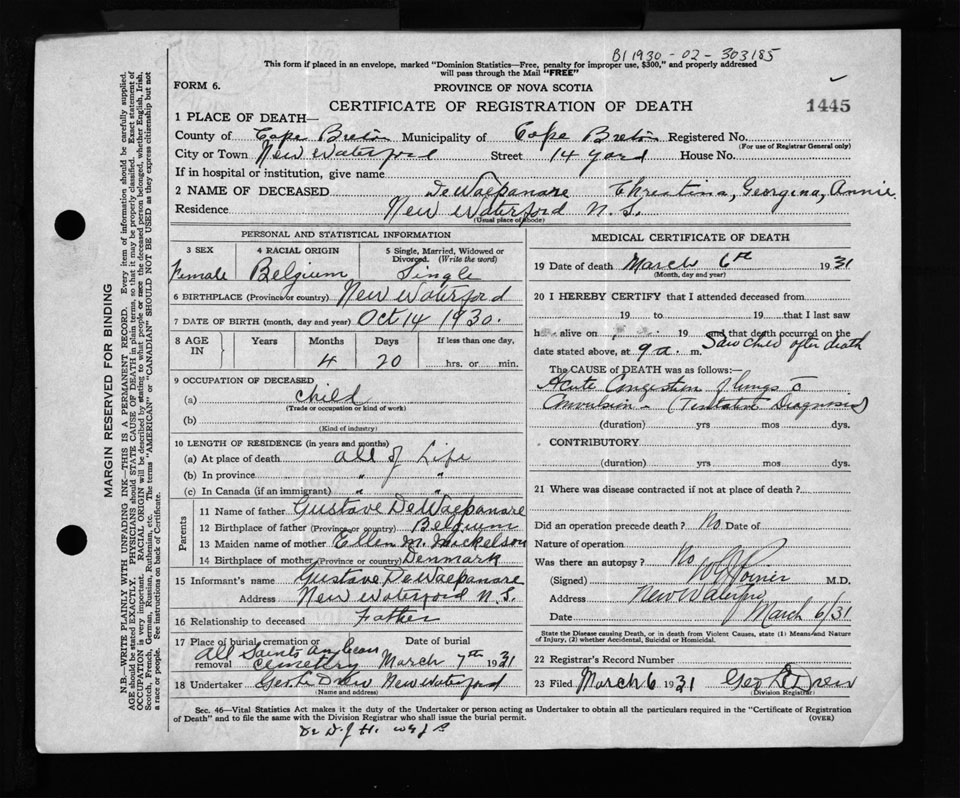 B1 1930-02-303185
This form if placed in an envelope, marked "Dominion Statistics—Free, penalty for improper use, $300," and properly addressed
will pass through the Mail "FREE"
FORM 6.
PROVINCE OF NOVA SCOTIA
CERTIFICATE OF REGISTRATION OF DEATH
1445
1 PLACE OF DEATH—
County of Cape Breton Municipality of Cape Breton Registered No.
(For use of Registrar General only)
City or Town New Waterford Street 14 Yard House No.
If in hospital or institution, give name
2 NAME OF DECEASED DeWaepanare Christina, Georgina, Annie
Residence New Waterford N.S.
(Usual place of abode)
PERSONAL AND STATISTICAL INFORMATION
3 SEX 4 RACIAL ORIGIN 5 Single, Married, Widowed or Divorced. (Write the word)
Female Belgium Single
6 BIRTHPLACE (Province or country) New Waterford
7 DATE OF BIRTH (month, day and year) Oct 14 1930.
8 AGE IN Years Months Days If less than one day,
4 20 hrs. or min.
9 OCCUPATION OF DECEASED
(a) child
(Trade or occupation or kind of work)
(b)
(Kind of industry)
10 LENGTH OF RESIDENCE (in years and months)
(a) At place of death all of Life
(b) In province " "
(c) In Canada (if an immigrant) " "
Parents
11 Name of father Gustave DeWaepanare
12 Birthplace of father (Province or country) Belgium
13 Maiden name of mother Ellen M. Mickelson
14 Birthplace of mother (Province or country) Denmark
15 Informant's name Gustave DeWaepanare
Address New Waterford N.S.
16 Relationship to deceased Father
17 Place of burial, cremation or removal Date of burial
All Saints Anglican Cemetery March 7th 1931
18 Undertaker Geo. L. Drew New Waterford
(Name and address)
MEDICAL CERTIFICATE OF DEATH
19 Date of death March 6th 1931
(Month, day and year)
20 I HEREBY CERTIFY that I attended deceased from
19 to 19 that I last saw
h alive on 19 and that death occurred on the
Saw child after death
date stated above, at 9 a. m.
The CAUSE OF DEATH was as follows:—
Acute Congestion of lungs c
Convulsion — (Tentative Diagnosis)
(duration) yrs mos dys.
CONTRIBUTORY
(duration) yrs mos dys.
21 Where was disease contracted if not at place of death?
Did an operation precede death? No Date of
Nature of operation
Was there an autopsy? No
(Signed) M.D.
Address New Waterford
Date March 6/31
State the Disease causing Death, or in death from Violent Causes, state (1) Means and Nature
of Injury, (2) whether Accidental, Suicidal or Homicidal.
22 Registrar's Record Number
23 Filed March 6 1931 Geo L Drew
(Division Registrar)
Sec. 46—Vital Statistics Act makes it the duty of the Undertaker or person acting as Undertaker to obtain all the particulars required in the "Certificate of Registration
of Death" and to file the same with the Division Registrar who shall issue the burial permit.
(OVER)
MARGIN RESERVED FOR BINDING
N.B.—WRITE PLAINLY WITH UNFADING INK—THIS IS A PERMANENT RECORD. Every item of information should be carefully supplied.
AGE should be stated EXACTLY. PHYSICIANS should STATE CAUSE OF DEATH in plain terms, so that it may be properly classified. Exact statement of
OCCUPATION is very important. RACIAL ORIGIN will be described by stating to what people or race the deceased person belonged, whether English, Irish,
Scotch, French, German, Russian, Ruthenian, etc. The terms "AMERICAN" or "CANADIAN" SHOULD NOT BE USED as they express citizenship but not
a race or people. See instructions on back of Certificate.